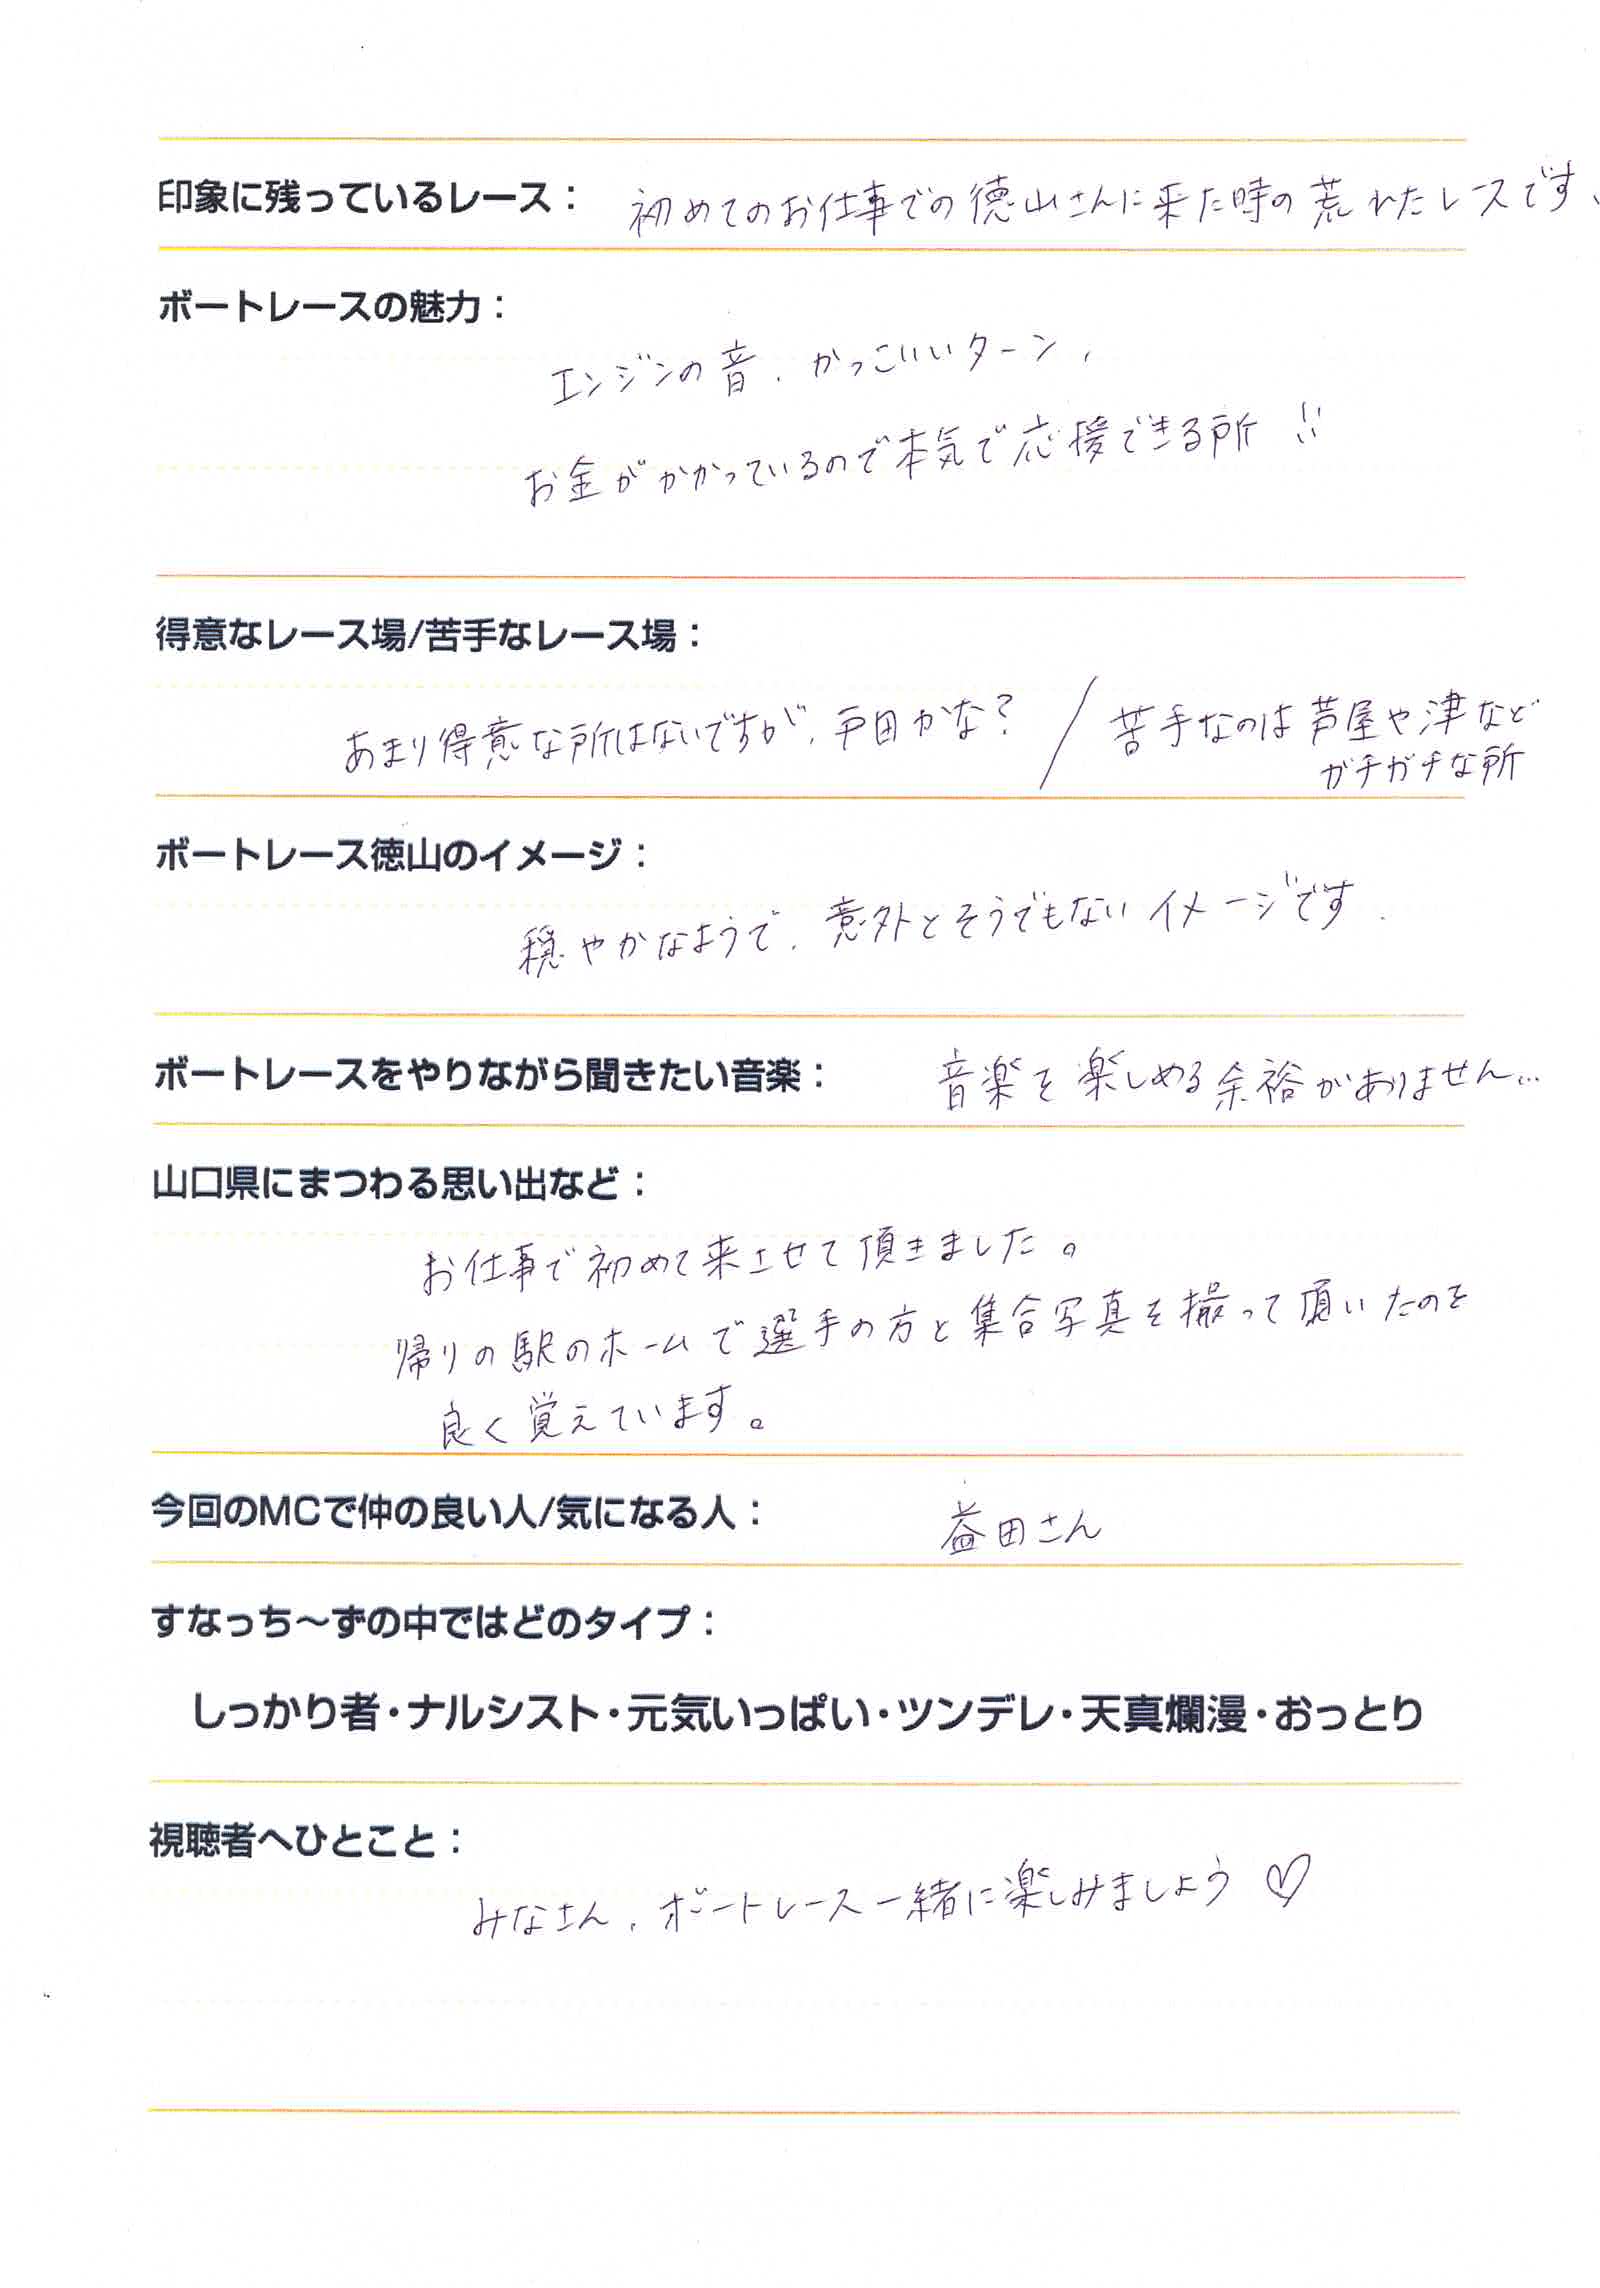 印象に残っているレース： 初めてのお仕事での徳山さんに来た時の荒れたレースです、
ボートレースの魅力：
エンジンの音、かっこいいターン、
お金がかかっているので本気で応援できる所!!
得意なレース場/苦手なレース場：
あまり得意な所はないですが、戸田かな？ / 苦手なのは芦屋や津など
ガチガチな所
ボートレース徳山のイメージ：
穏やかなようで、意外とそうでもないイメージです.
ボートレースをやりながら聞きたい音楽： 音楽を楽しめる余裕がありません…
山口県にまつわる思い出など：
お仕事で初めて来させて頂きました。
帰りの駅のホームで選手の方と集合写真を撮って頂いたのを
良く覚えています。
今回のMCで仲の良い人/気になる人： 益田さん
すなっち～ずの中ではどのタイプ：
しっかり者・ナルシスト・元気いっぱい・ツンデレ・天真爛漫・おっとり
視聴者へひとこと：
みなさん、ボートレース一緒に楽しみましょう♡